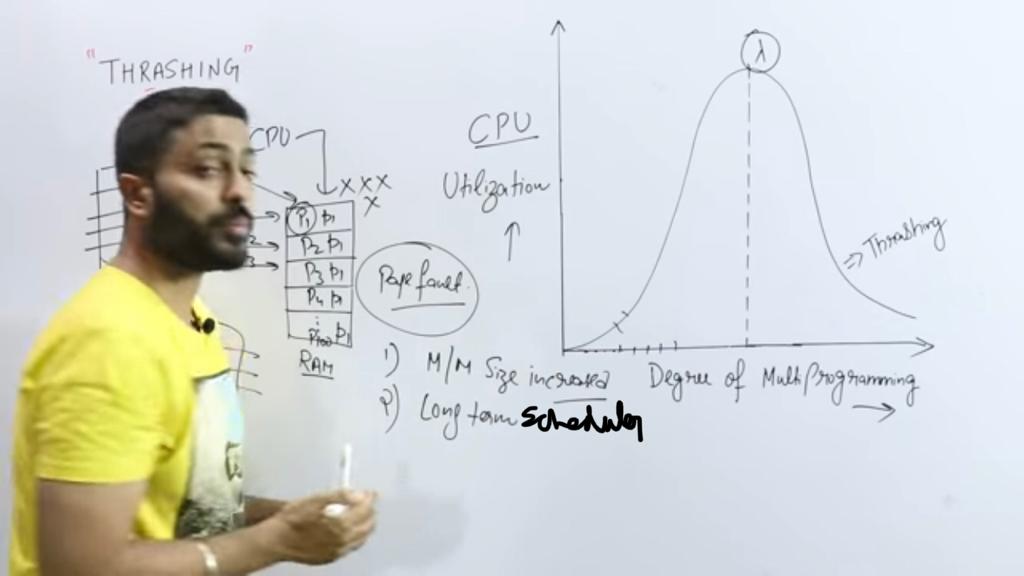 "THRASHING"
CPU
x x x
x
P1 P1
2 P2 P1
3 P3 P1
P4 P1
P100 P1
RAM
Page fault.
1) M/M Size increased
2) Long term Scheduler
CPU
Utilization
λ
⇒ Thrashing
Degree of Multiprogramming